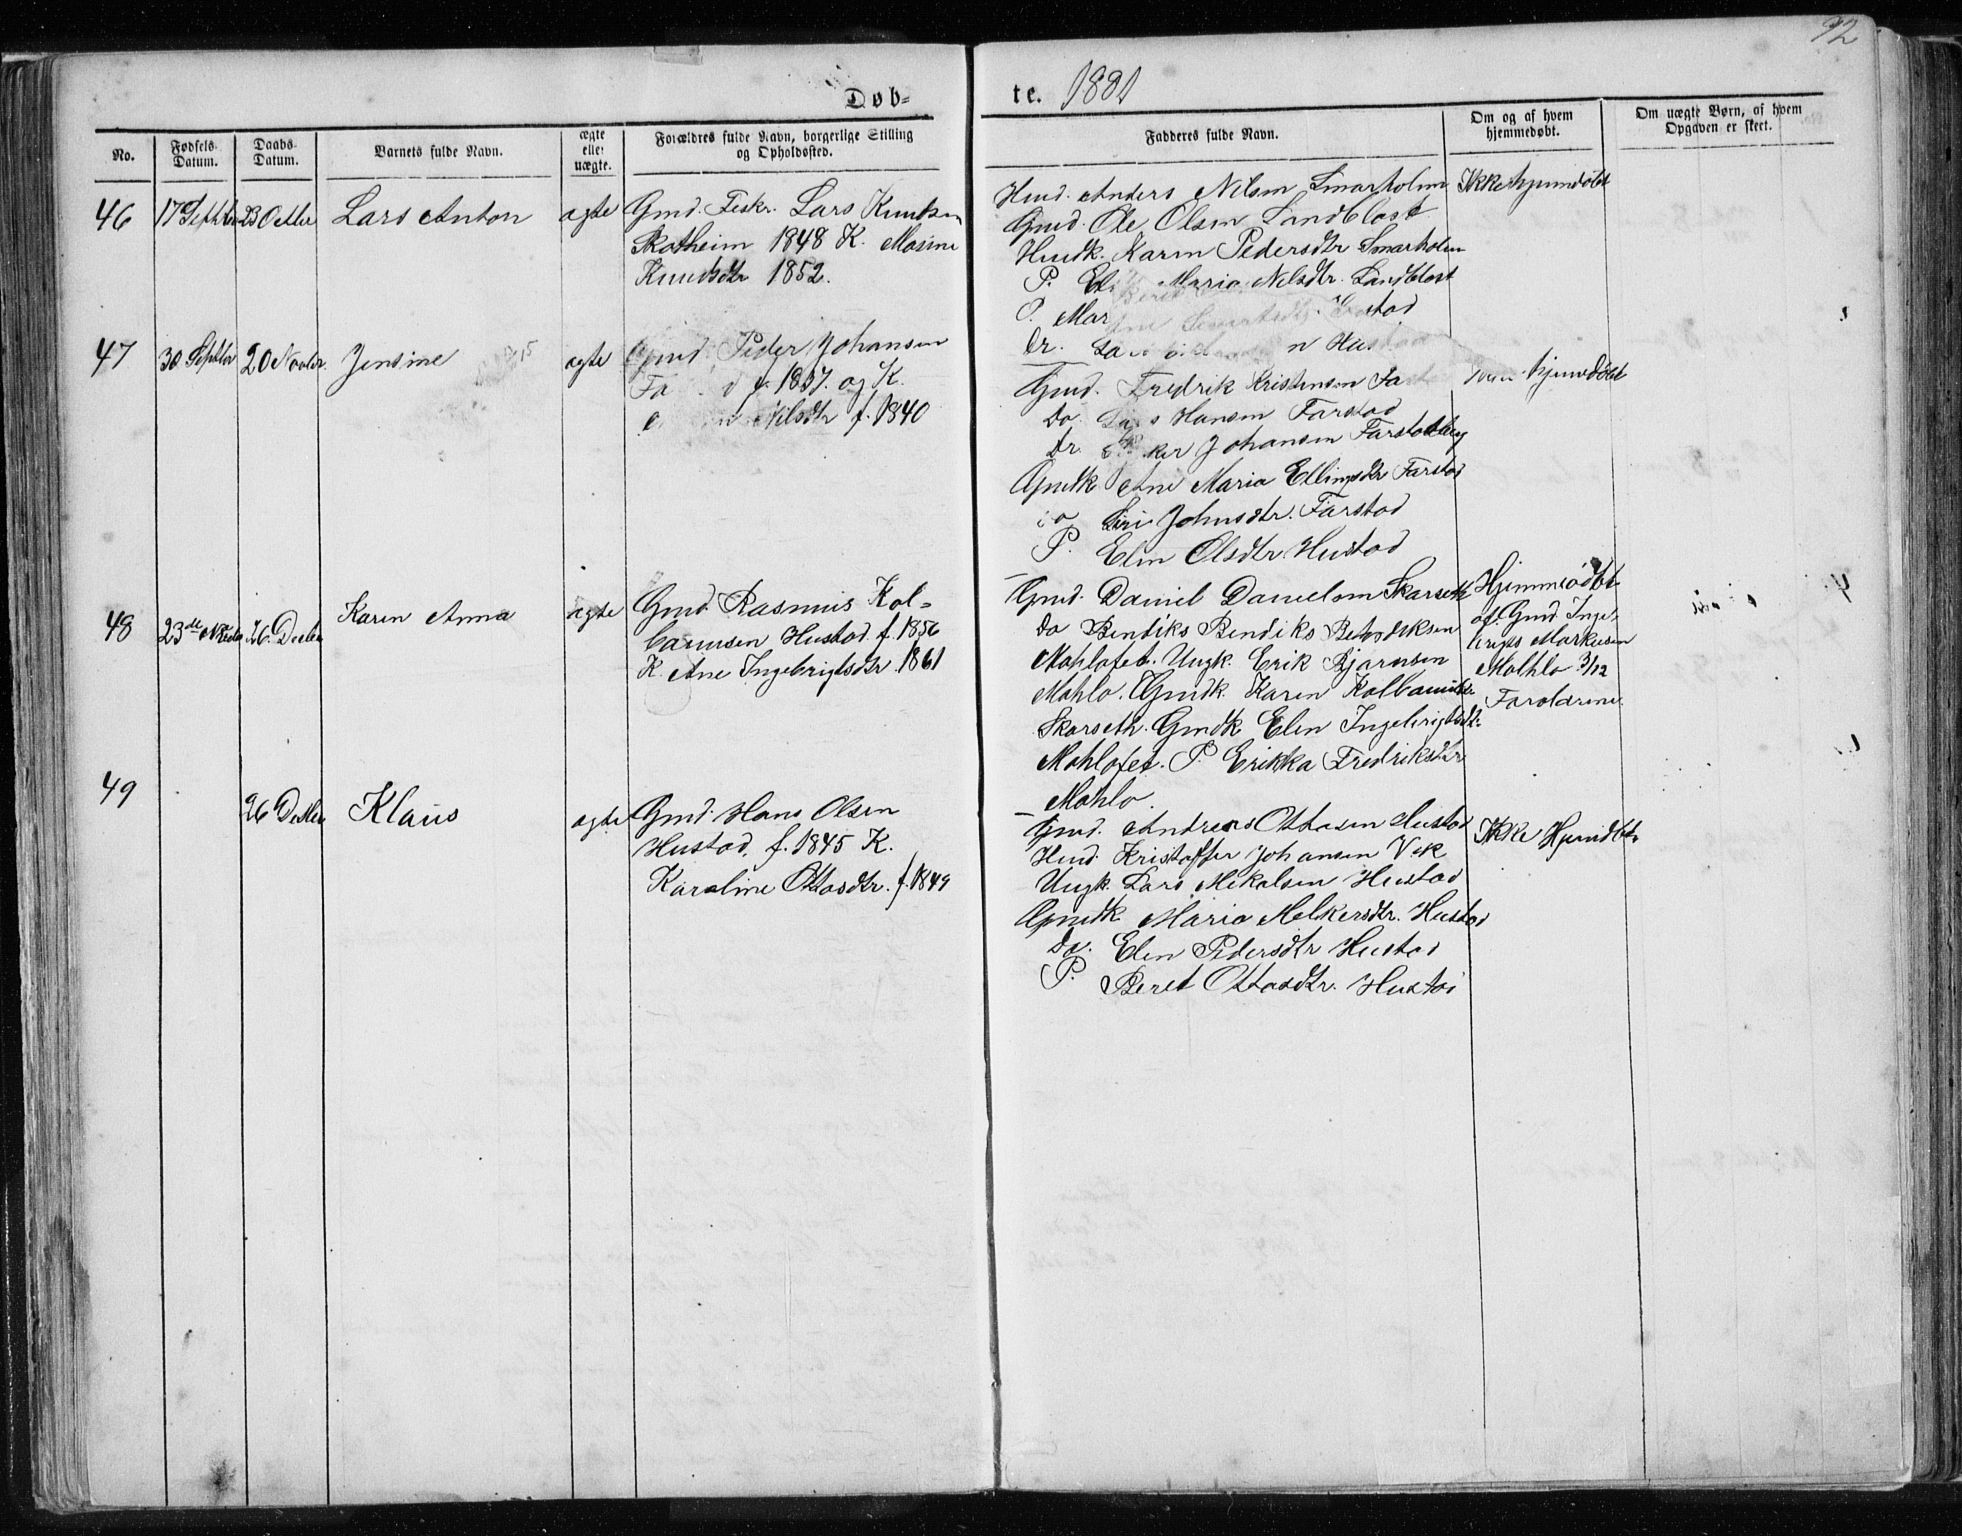 92
Døb-
te. 1881
No.
Fødsels-Datum.
Daabs-Datum.
Barnets fulde Navn.
ægte eller uægte.
Forældres fulde Navn, borgerlige Stilling og Opholdssted.
Fadderes fulde Navn.
Om og af hvem hjemmedøbt.
Om uægte Børn, af hvem Opgaven er skeet.
46 17 Septbr 23 Octbr Lars Anton ægte Gmd. Fiskr. Lars Knutsen
Skotheim 1848 K.
Knudsdtr 1852.
Husd. Anders Nilsen Smørholm
Gmd. Ole Olsen Sandblost
Husdk. Karen Pedersdtr Smørholm
P. Maria Nilsdtr. Sandblost
P. Mar
Dr. n Hus
Ikke hjemdøbt
47 30 Septbr 20 Novbr. Jensine ægte Gmd. Peder Johansen
Fa d f. 1837. og K.
Nilsdtr f. 1840
Gmd. Fredrik Kristensen Fa
Do. Hansen Farstad
Dr. Johansen Farstadberg
Gmdk Ane Maria Ellingsdtr Farstad
Do Siri Johnsdtr. Farstad
P. Elen Olsdtr. Hustad
hjemdøbt
48 23de 26. Decbr Karen Anna ægte Gmd. Rasmus Kol-
bannsen Hustad f. 1856
K. Ane Ingebrigtsdtr 1861
Gmd. Daniel Danielsen Skarseth
Do Bendiks Bendiks Bendiksen
Mohlofet. Ungk. Erik Bjørnsen
Mohlo. Gmdk. Karen
Skarseth. Gmdk Elen Ingebrigtsdtr.
Mohlofet. P. Erikka Fredriksdtr
Mohlo.
Hjemmedøbt
af Gmd. Inge-
brigts Markusen
Molhlo 3/12
Forældrene
49 26 Decbr Klaus ægte Gmd. Hans Olsen
Hustad, f. 1845 K.
Karoline Ottosdtr. f. 1849
Gmd. Andreas Ottosen Hustad
Husd. Kristoffer Johansen Vik
Ungk. Lars Mikalsen Hustad
Gmdk Maria Melkersdtr. Hustad
Do. Elen Pedersdtr Hustad
P. Beret Ottosdtr. Hustad
Ikke Hjemdøbt